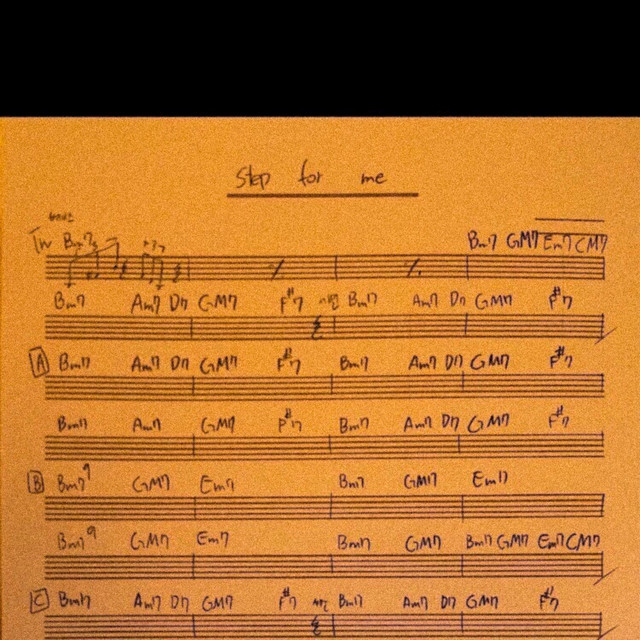 Step for me
In Bm7 Bm7 GM7 Em7 CM7
Bm7 Am7 D7 GM7 F#7 Bm7 Am7 D7 GM7 F#7
A Bm7 Am7 D7 GM7 F#7 Bm7 Am7 D7 GM7 F#7
Bm7 Am7 GM7 F#7 Bm7 Am7 D7 GM7 F#7
B Bm7 9 GM7 Em7 Bm7 GM7 Em7
Bm7 9 GM7 Em7 Bm7 GM7 Bm7 GM7 Em7 CM7
C Bm7 Am7 D7 GM7 F#7 Bm7 Am7 D7 GM7 F#7